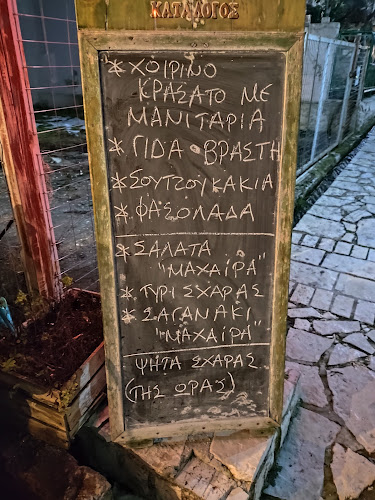 ΚΑΤΑΛΟΓΟΣ
* ΧΟΙΡΙΝΟ
ΚΡΑΣΑΤΟ ΜΕ
ΜΑΝΙΤΑΡΙΑ
* ΓΙΔΑ ΒΡΑΣΤΗ
* ΣΟΥΤΖΟΥΚΑΚΙΑ
* ΦΑΣΟΛΑΔΑ
* ΣΑΛΑΤΑ
"ΜΑΧΑΙΡΑ"
* ΤΥΡΙ ΣΧΑΡΑΣ
* ΣΑΓΑΝΑΚΙ
"ΜΑΧΑΙΡΑ"
ΨΗΤΑ ΣΧΑΡΑΣ
(ΤΗΣ ΩΡΑΣ)